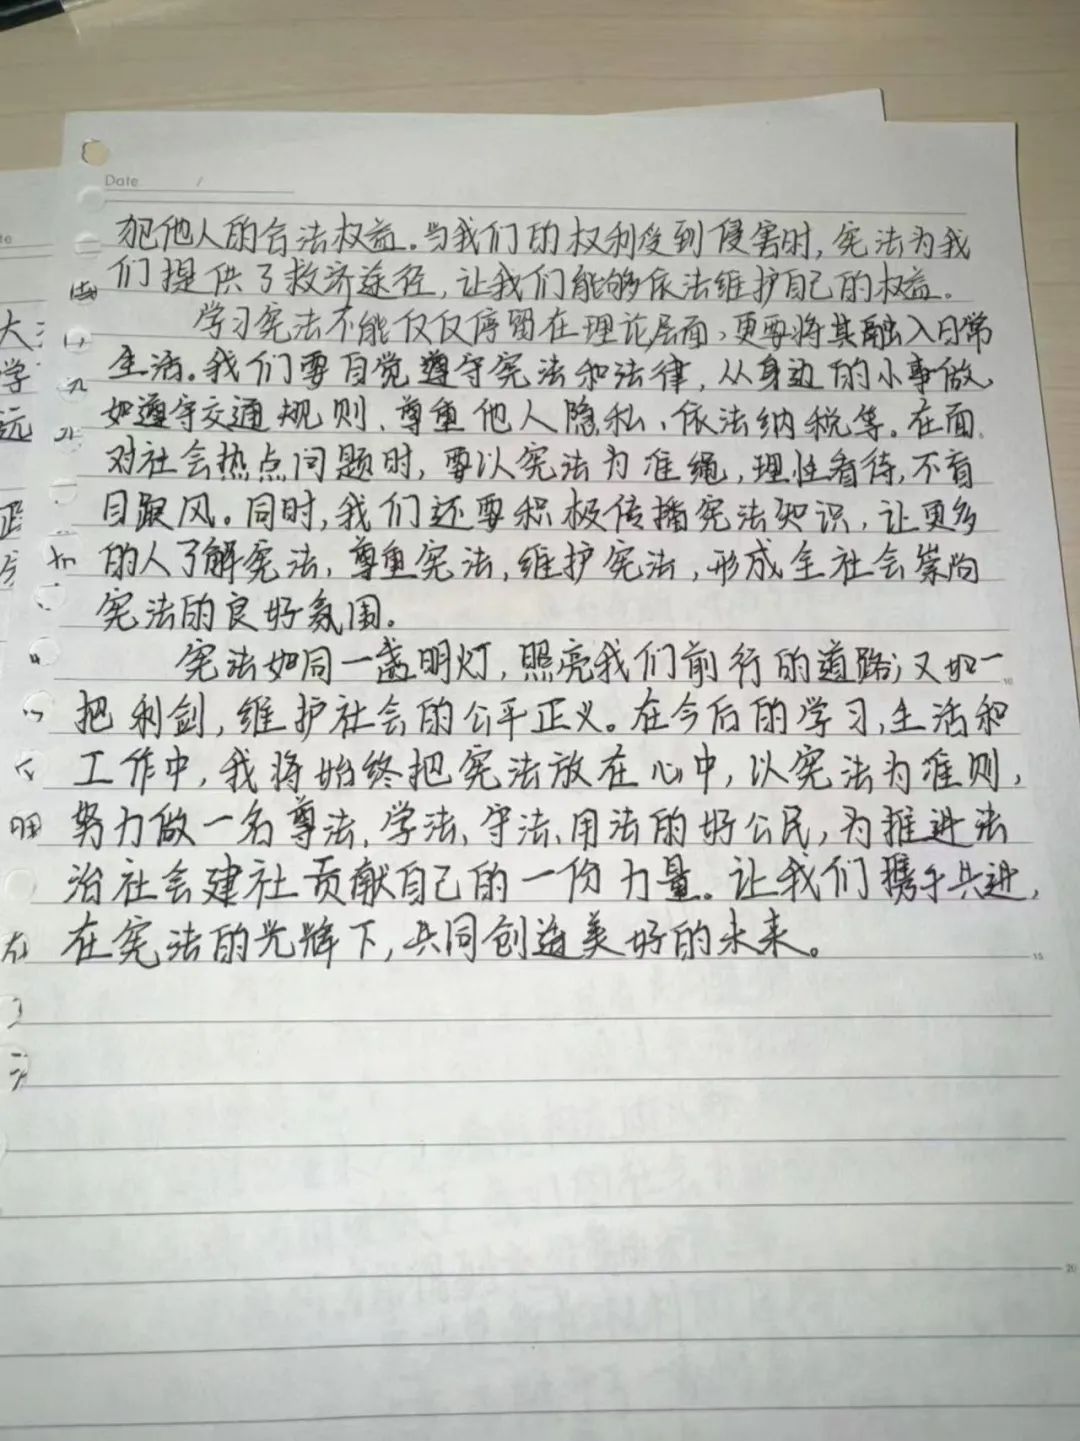 Date /
犯他人的合法权益。当我们的权利受到侵害时，宪法为我
们提供了救济途径，让我们能够依法维护自己的权益。
学习宪法不能仅仅停留在理论层面，更要将其融入日常
生活。我们要自觉遵守宪法和法律，从身边的小事做
如遵守交通规则、尊重他人隐私、依法纳税等。在面
对社会热点问题时，要以宪法为准绳，理性看待，不盲
目跟风。同时，我们还要积极传播宪法知识，让更多
的人了解宪法、尊重宪法，维护宪法，形成全社会崇尚
宪法的良好氛围。
宪法如同一盏明灯，照亮我们前行的道路；又如一
把利剑，维护社会的公平正义。在今后的学习，生活和
工作中，我将始终把宪法放在心中，以宪法为准则，
努力做一名尊法、学法、守法、用法的好公民，为推进法
治社会建社贡献自己的一份力量。让我们携手共进，
在宪法的光辉下，共同创造美好的未来。
10
15
20